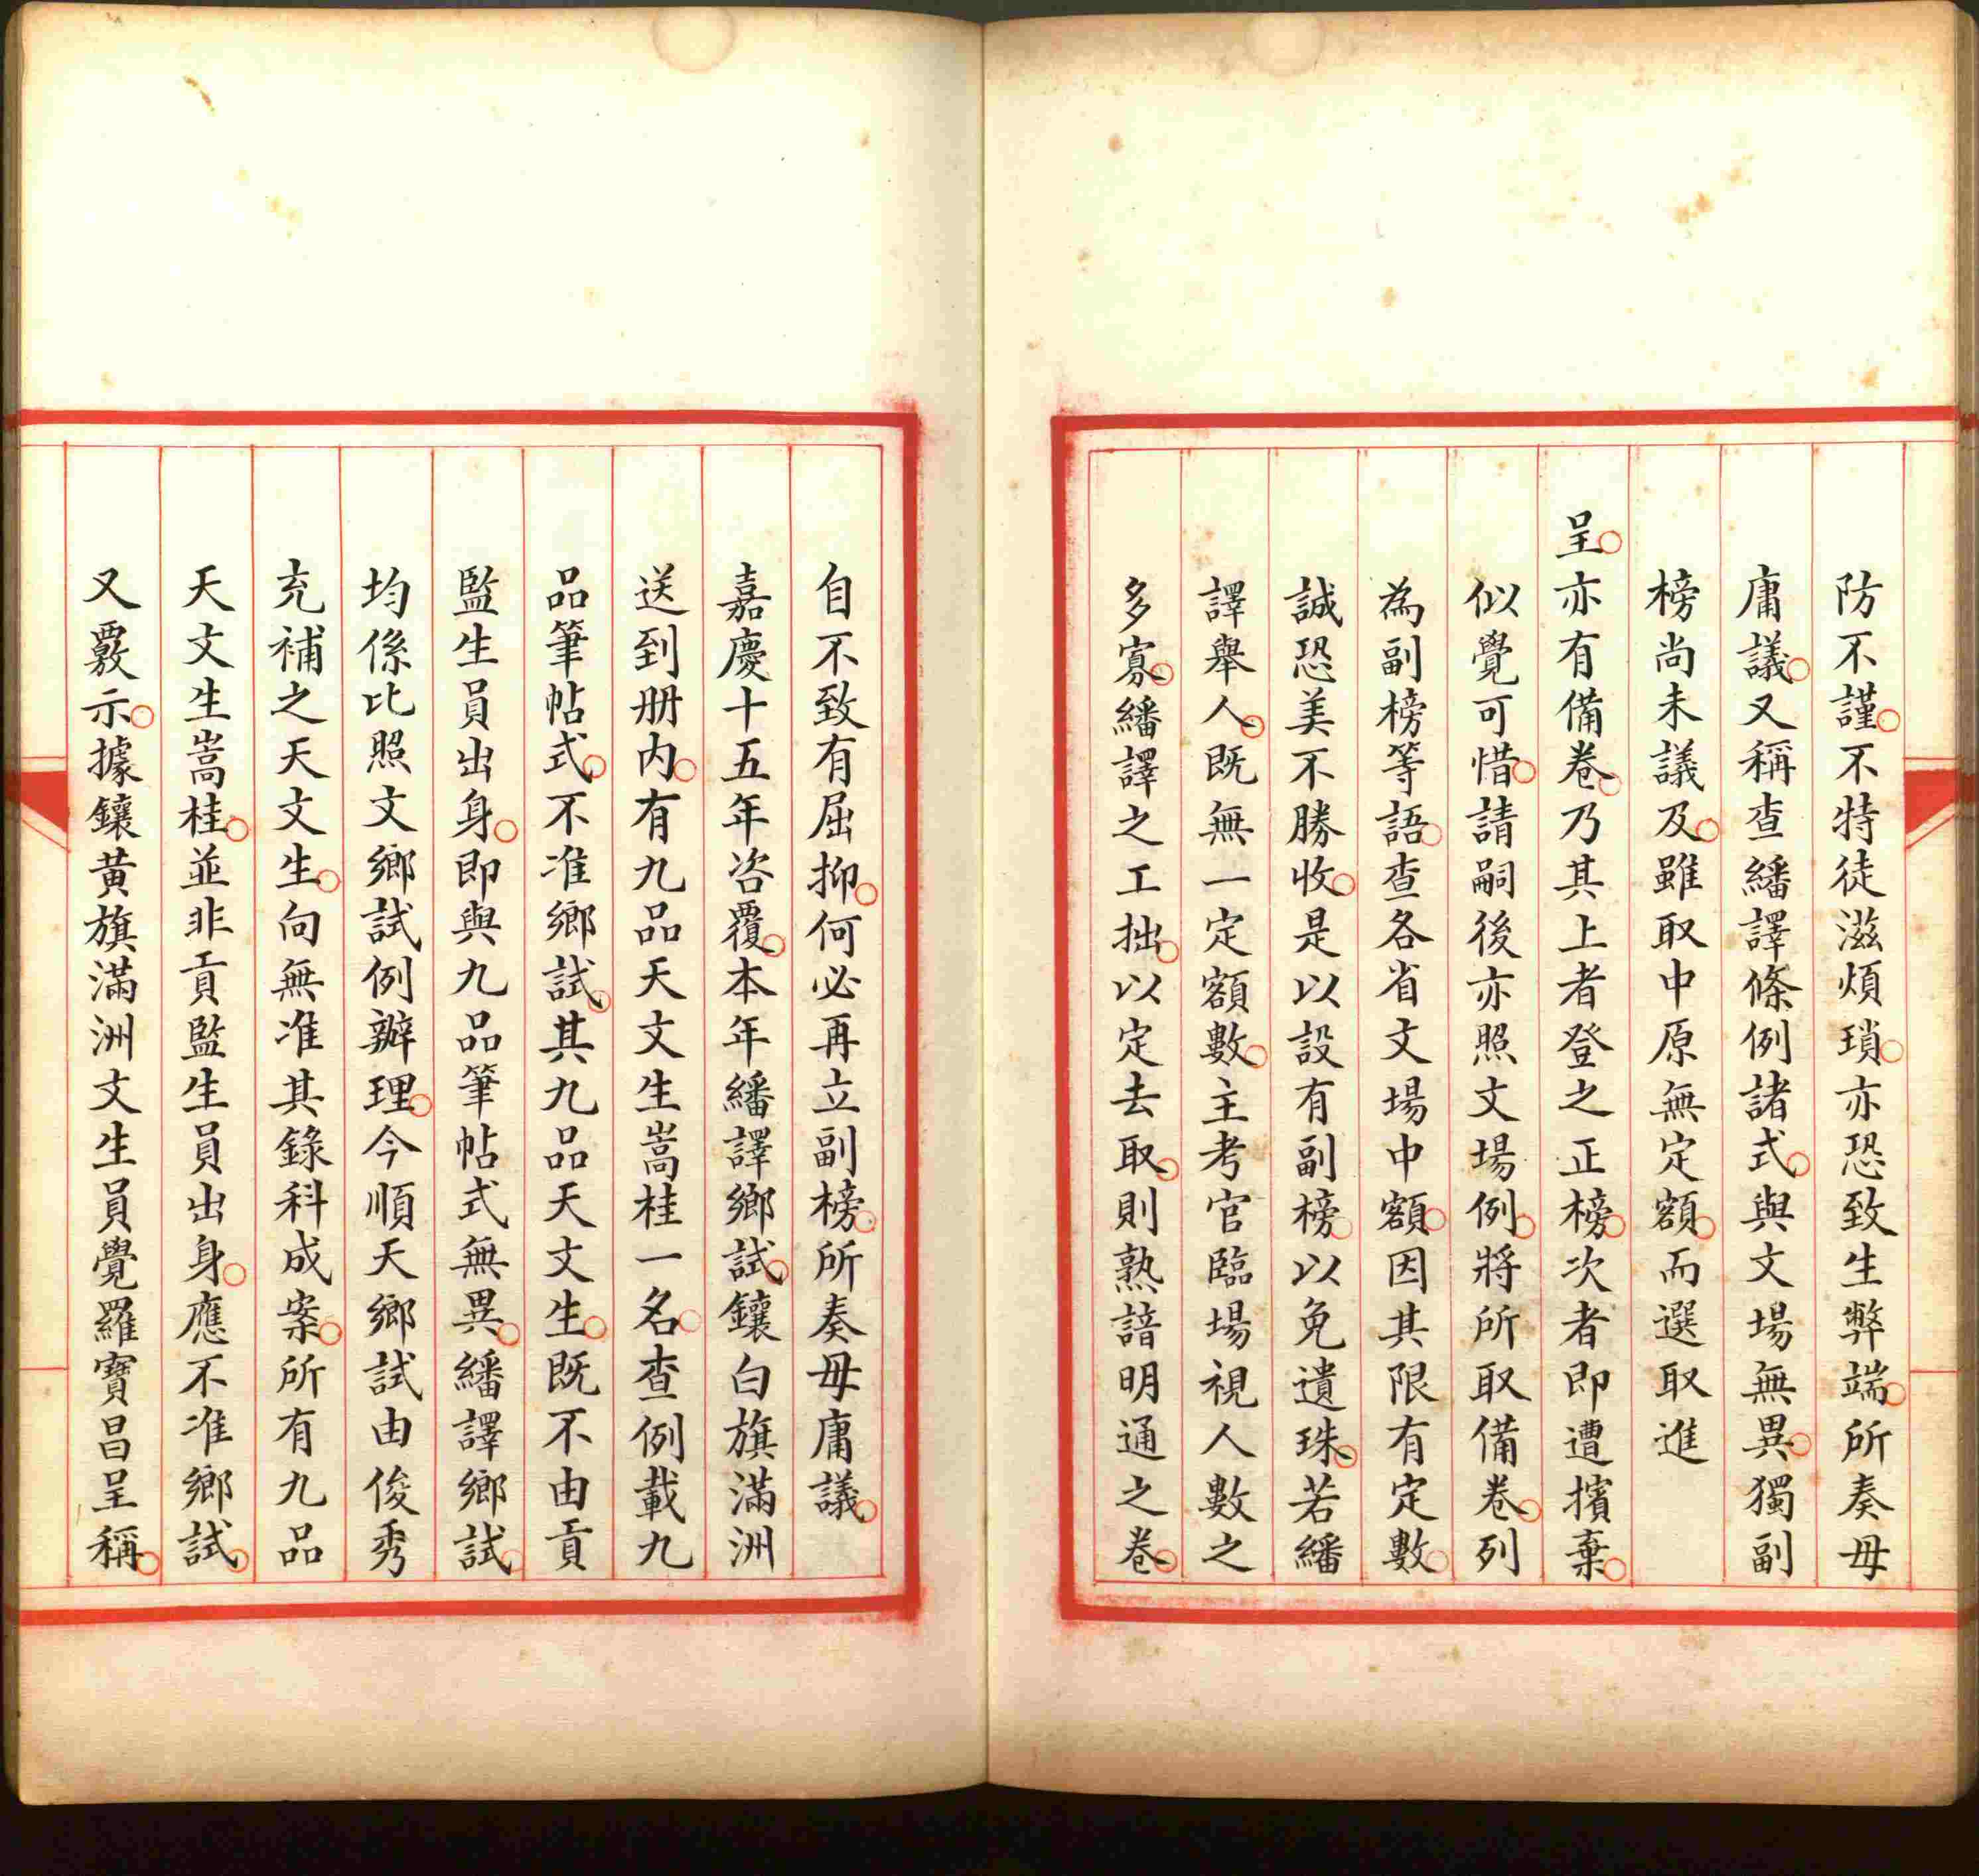 防不謹不特徒滋煩瑣亦恐致生弊端所奏毋
庸議又稱查繙譯條例諸式與文場無異獨副
榜尚未議及雖取中原無定額而選取進
呈亦有備卷乃其上者登之正榜次者即遭擯棄
似覺可惜請嗣後亦照文場例將所取備卷列
為副榜等語查各省文場中額因其限有定數
誠恐美不勝收是以設有副榜以免遺珠若繙
譯舉人既無一定額數主考官臨場視人數之
多寡繙譯之工拙以定去取則熟諳明通之卷
自不致有屈抑何必再立副榜所奏毋庸議
嘉慶十五年咨覆本年繙譯鄉試鑲白旗滿洲
送到册内有九品天文生嵩桂一名查例載九
品筆帖式不准鄉試其九品天文生既不由貢
監生員出身即與九品筆帖式無異繙譯鄉試
均係比照文鄉試例辦理今順天鄉試由俊秀
充補之天文生向無准其錄科成案所有九品
天文生嵩桂並非貢監生員出身應不准鄉試
又覈示據鑲黃旗滿洲文生員覺羅寶昌呈稱